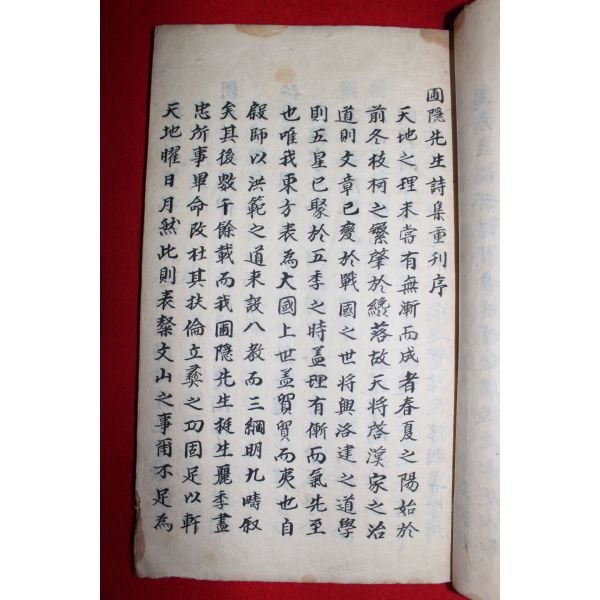 圃隠先生詩集重刊序
天地之理未嘗有無漸而成者春夏之陽始於
前冬枝柯之繁肇於纔落故天將啓漢家之治
道則文章已變於戰國之世将興洛建之道學
則五星已聚於五季之時盖理有漸而氣先至
也唯我東方表為大國上世盖貿貿而夷也自
殷師以洪範之道来設八教而三綱明九疇叙
矣其後數千餘載而我圃隠先生挺生麗季盡
忠所事畢命改社其扶倫立彜之功固足以軒
天地曜日月然此則表槃文山之事爾不足為